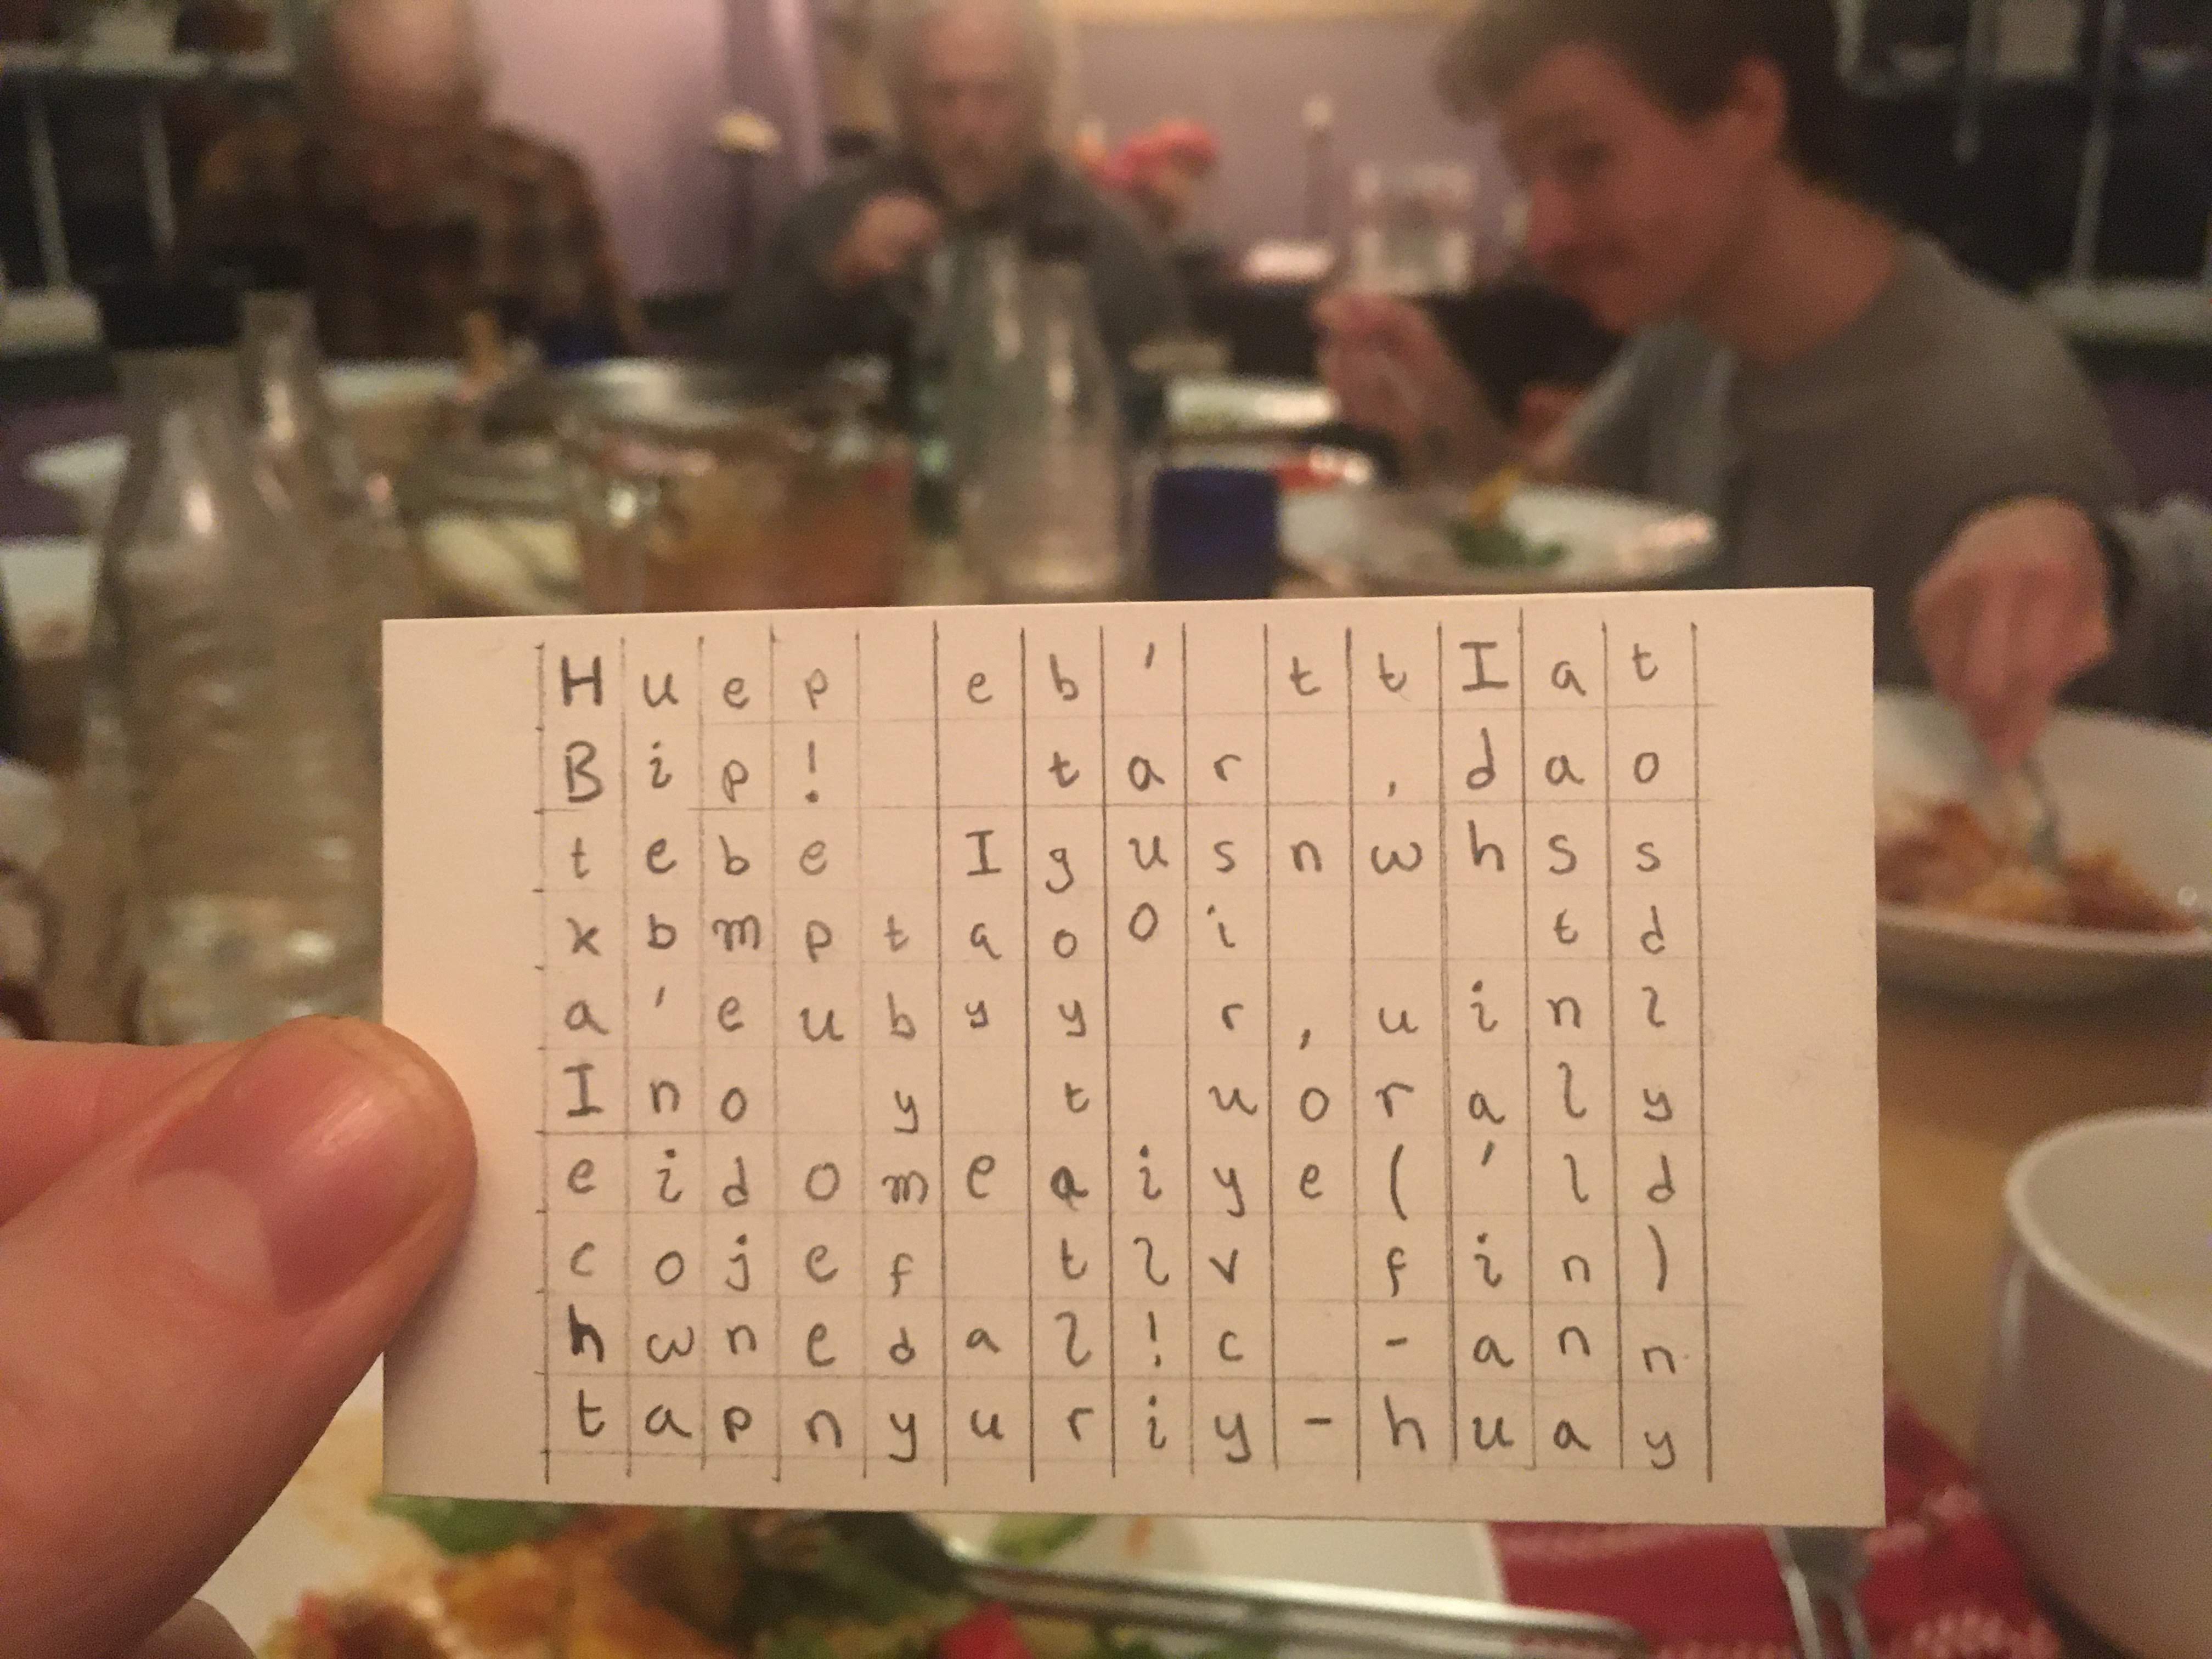 H u e p e b ' t t I a t
B i p ! t a r , d a o
t e b e I g u s n w h s s
x b m p t a o o i t d
a ' e u b y y r , u i n l
I n o y t u o r a l y
e i d o m e a i y e ( ' l d
c o j e f t l v f i n )
h w n e d a l ! c - a n n
t a p n y u r i y - h u a y